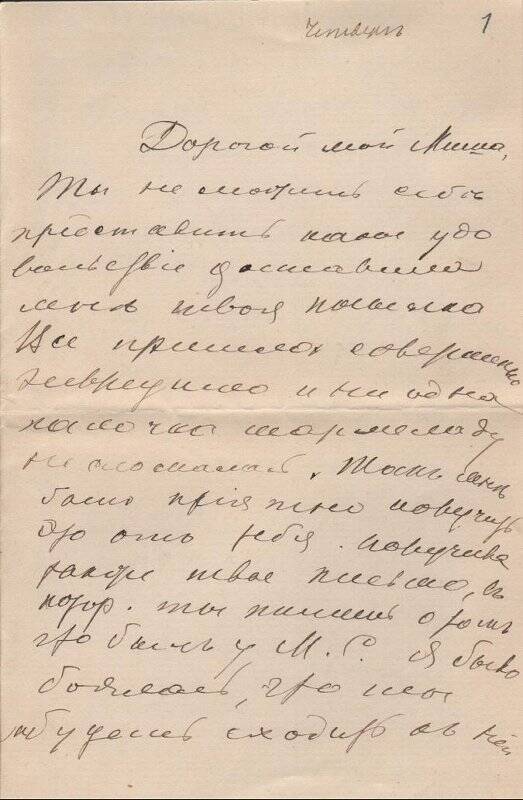 Четвергъ
1
Дорогой мой Миша,
Ты не можешь себѣ
представить какое удо
вольствіе доставила
мнѣ твоя посылка
Все пришло совершенно
невредимо и ни одна
палочка мармеладу
не сломалась. Такъ мнѣ
было пріятно получить
это отъ тебя. получила
также твое письмо, въ
котор. ты пишешь о томъ
что былъ у М. С. Я было
боялась, что ты
забудешь сходить къ ней